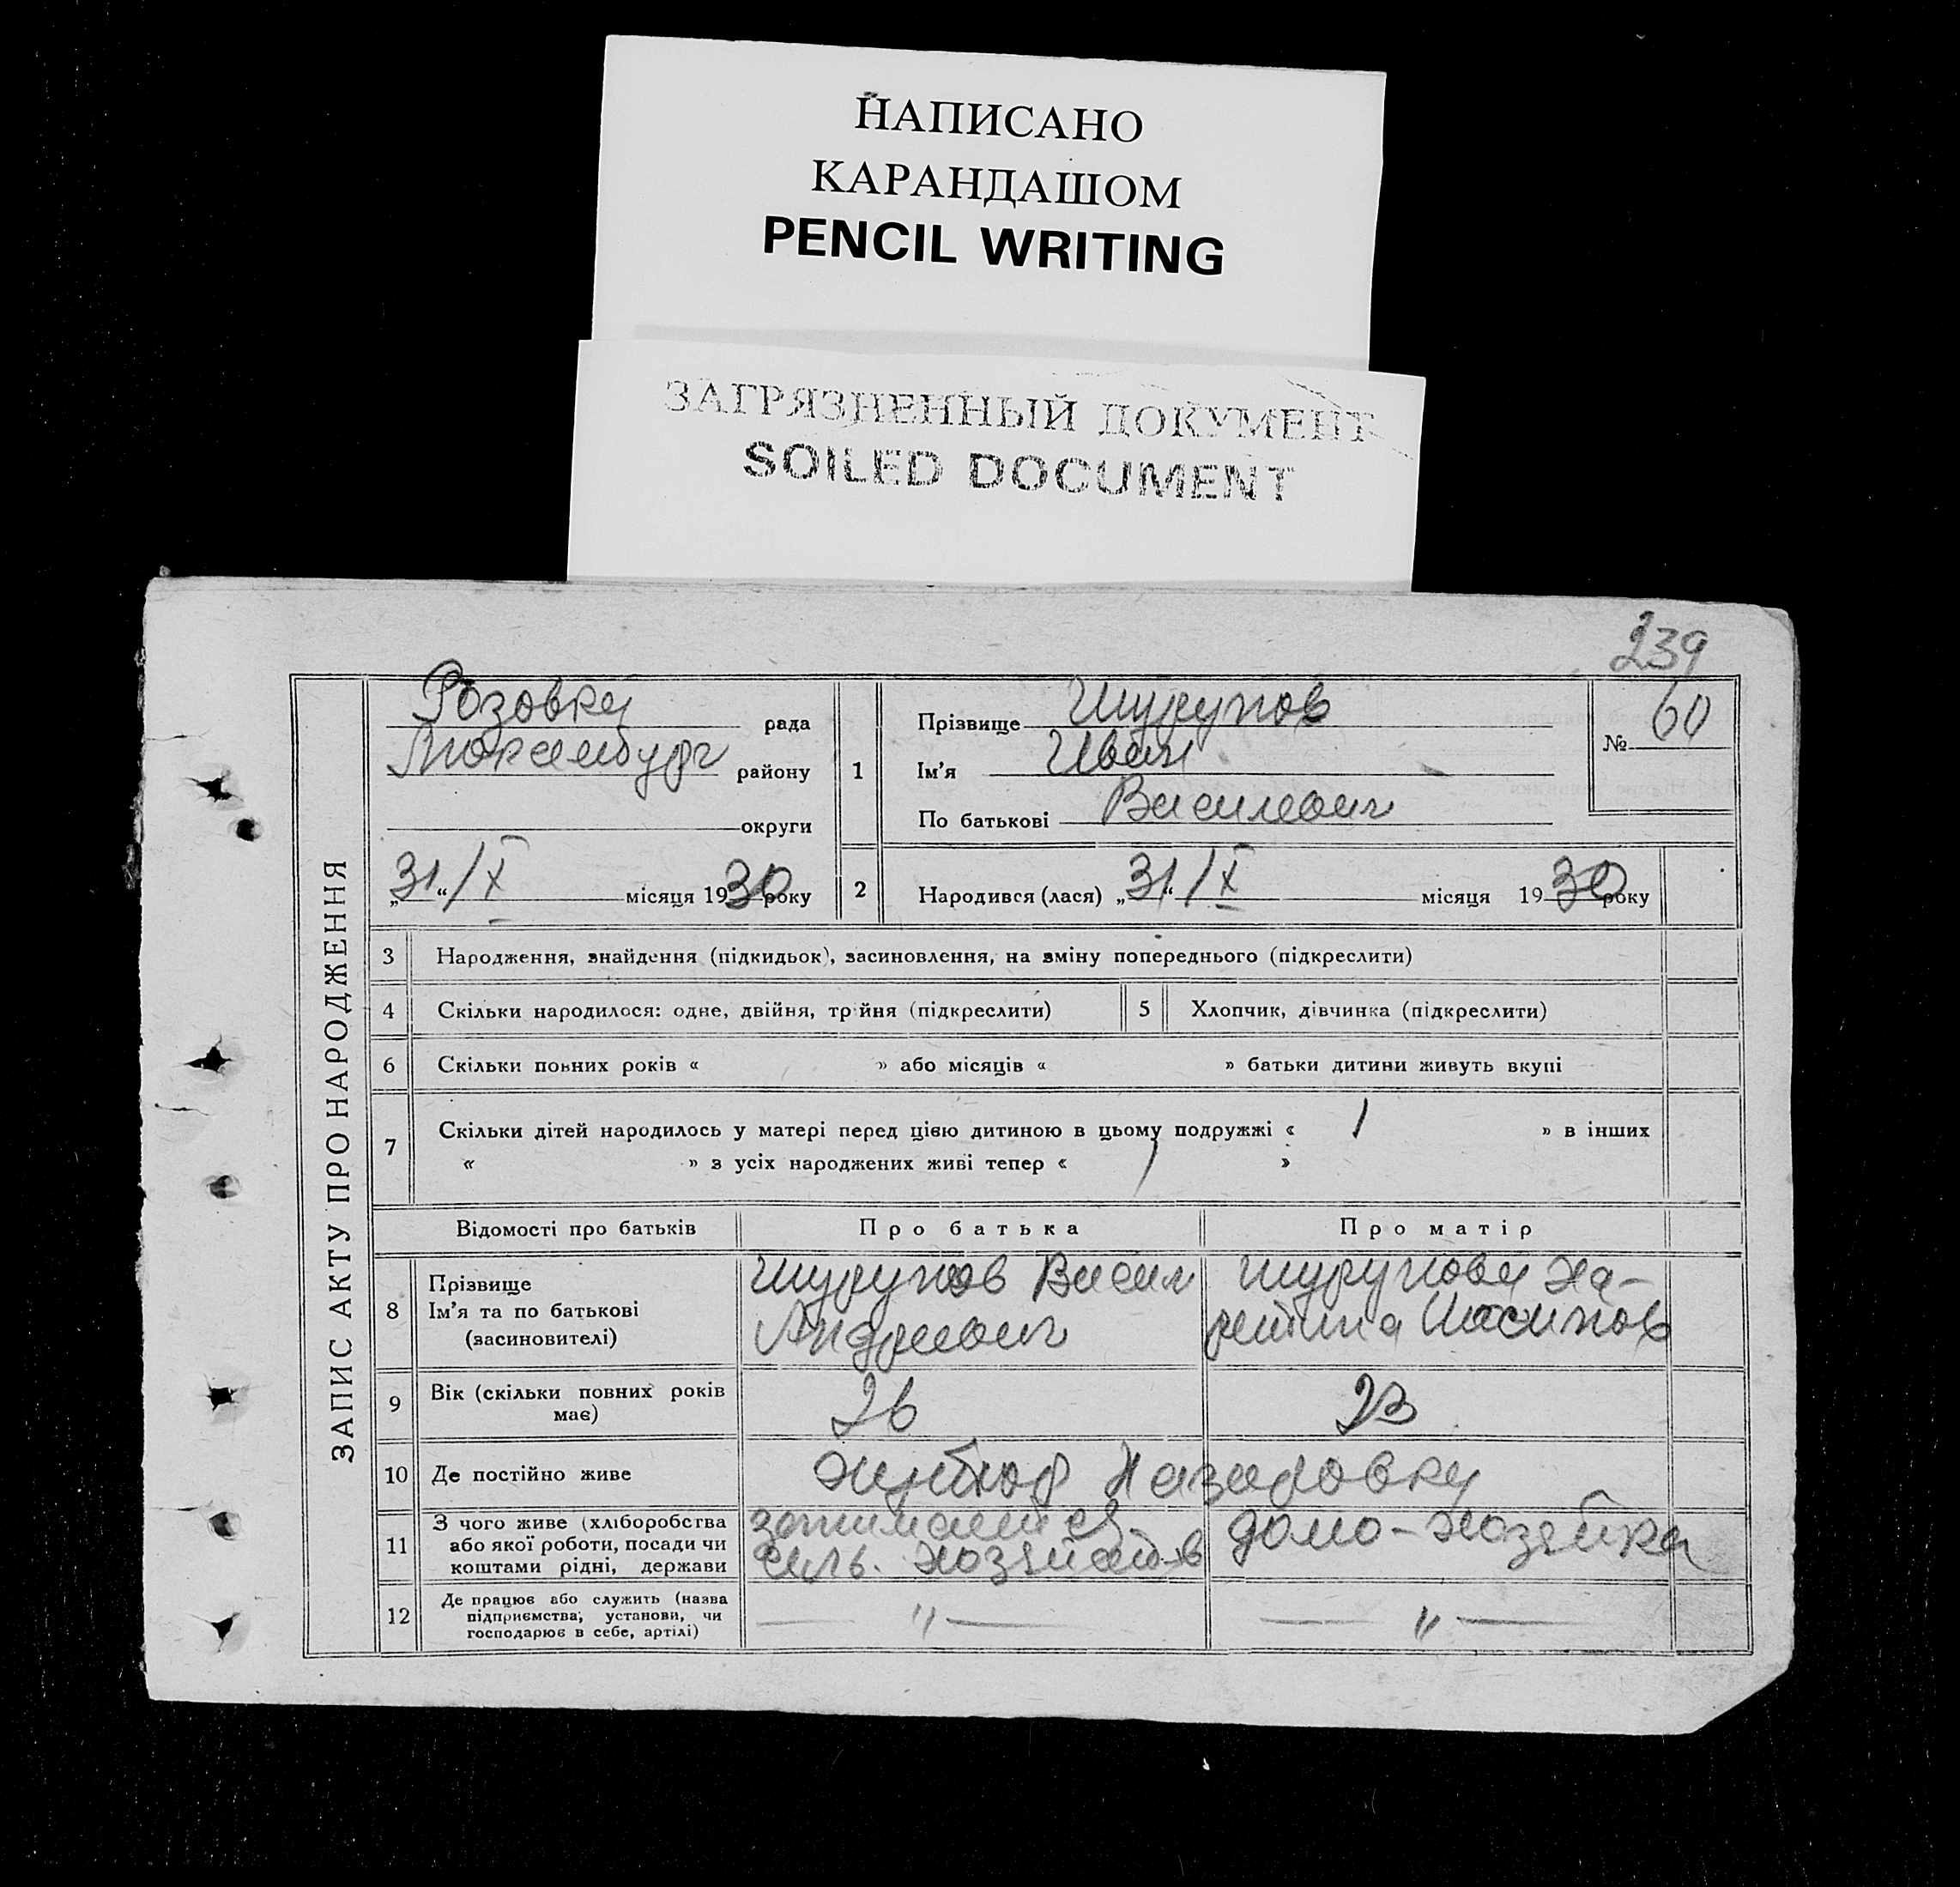 НАПИСАНО
КАРАНДАШОМ
PENCIL WRITING
ЗАГРЯЗНЕННЫЙ ДОКУМЕНТ
SOILED DOCUMENT
239
ЗАПИС АКТУ ПРО НАРОДЖЕННЯ
Розовка рада
Люксембург району
округи
„31“/X місяця 1930 року
1 Прізвище Шурупов
Ім'я Иван
По батькові Василевич
№ 60
2 Народився (лася) „31“/X місяця 1930 року
3 Народження, знайдення (підкидьок), засиновлення, на зміну попереднього (підкреслити)
4 Скільки народилося: одне, двійня, трійня (підкреслити) 5 Хлопчик, дівчинка (підкреслити)
6 Скільки повних років « » або місяців « » батьки дитини живуть вкупі
7 Скільки дітей народилось у матері перед цією дитиною в цьому подружжі « 1 » в інших
« » з усіх народжених живі тепер « 1 »
Відомості про батьків Про батька Про матір
8 Прізвище
Ім'я та по батькові
(засиновителі)
Шурупов Васил
Андреевич
Шурупова Ха-
ритина
9 Вік (скільки повних років
має)
26 23
10 Де постійно живе Хутор Назаровка
11 З чого живе (хліборобства
або якої роботи, посади чи
коштами рідні, держави
занимается
сель. хозяйств
домо-хозяйка
12 Де працює або служить (назва
підприємства, установи, чи
господарює в себе, артілі)
— " — — " —